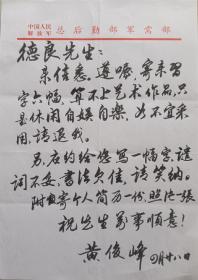 中国人民
解放军 总后勤部军需部
德良先生：
来信悉。遵嘱，寄来习
字六幅，算不上艺术作品，只
是休闲自娱自乐，如不宜采
用，请退我。
另，应约给您写一幅字，谨
词不妥，书法欠佳，请笑纳。
附上寄个人简历一份，照片一张
祝先生万事顺意！
黄俊峰
四月廿八日